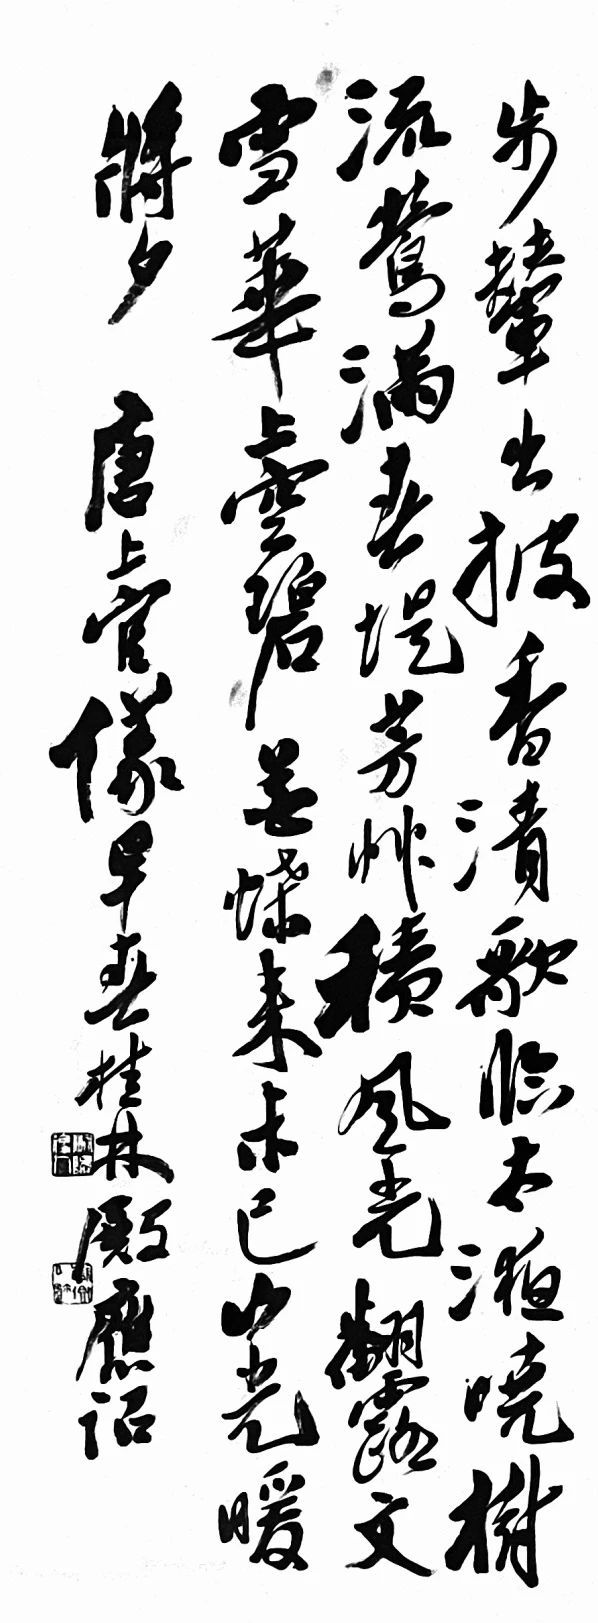 步輦出披香清歌臨太液曉樹
流鶯滿春堤芳艸積風光翻露文
雪華上空碧花蝶來未已山光暖
將夕 唐上官儀早春桂林殿應詔